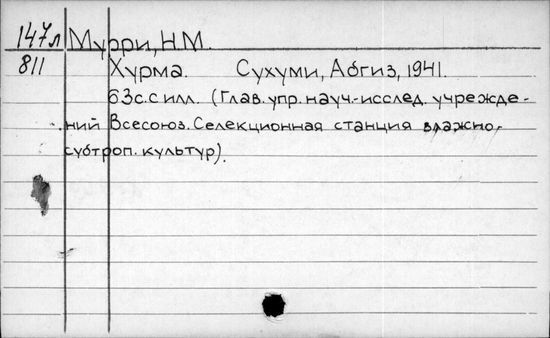 147л Мурри, Н.М.
811 Хурма. Сухуми, Абгиз, 1941.
63с. с илл. (Глав. упр. науч.-исслед. учрежде-
ний Всесоюз. Селекционная станция влажно-
субтроп. культур).